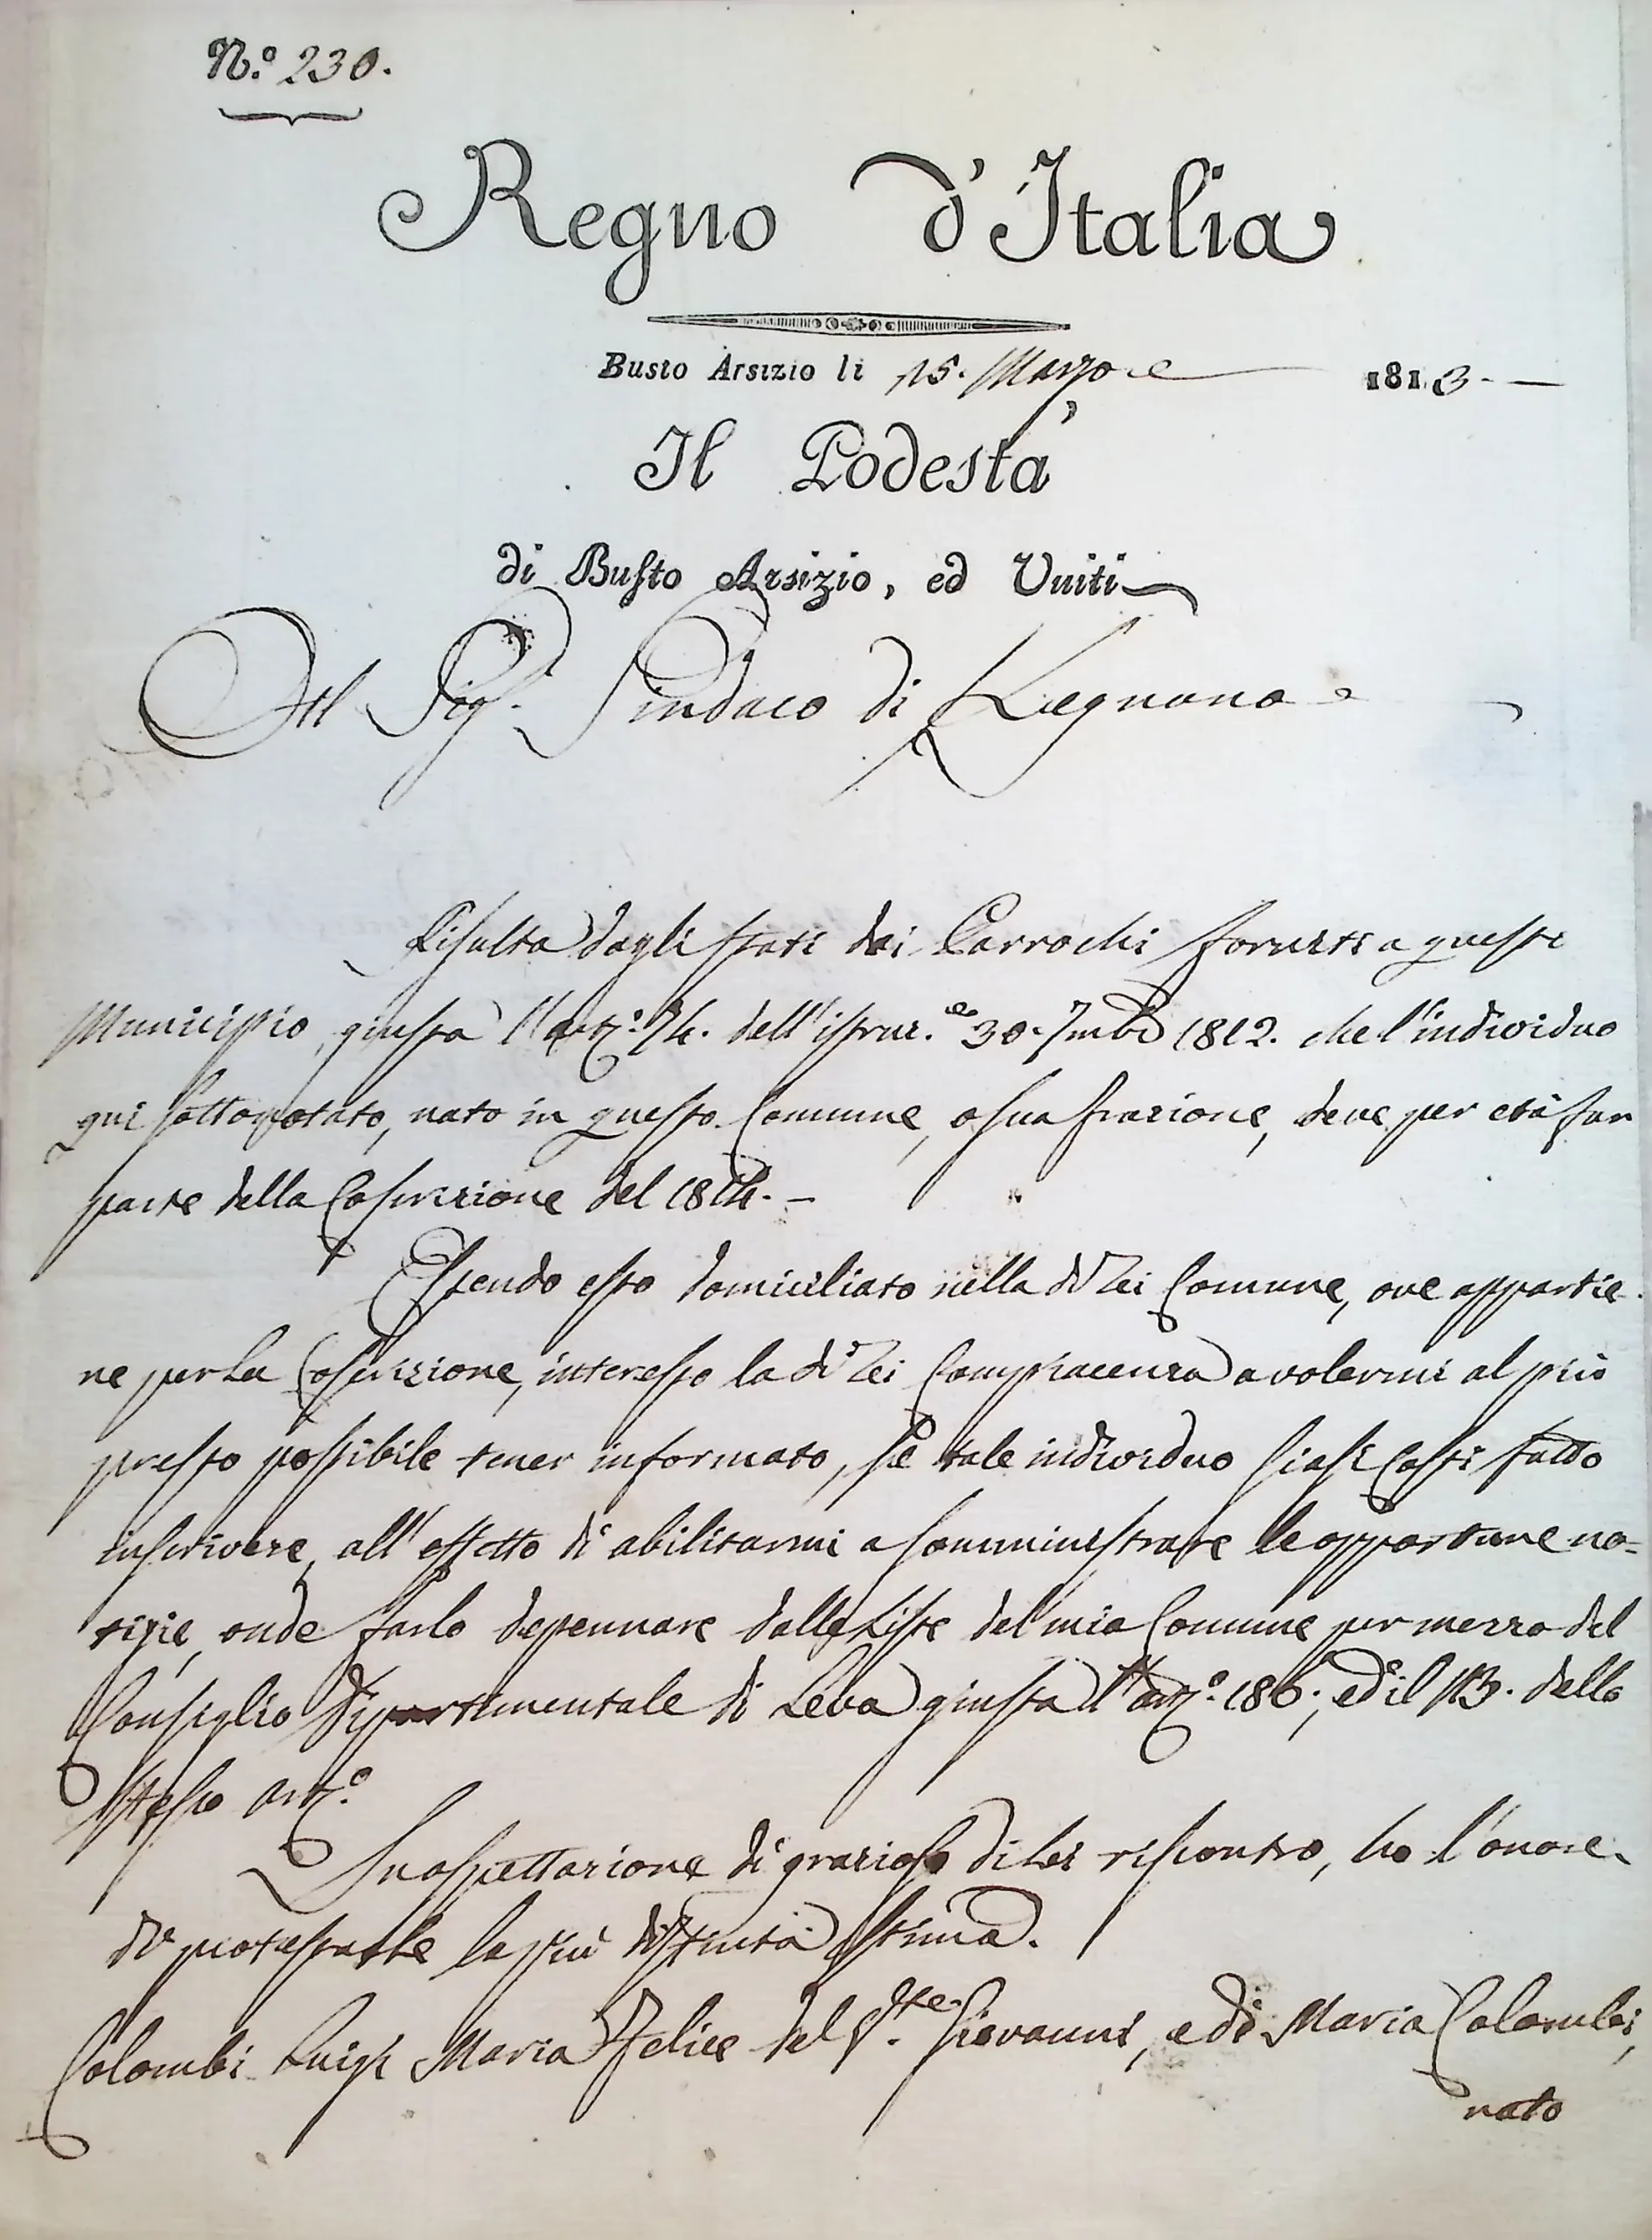 N.º 230.
Regno d'Italia
Busto Arsizio li 15. Marzo 1813.
Il Podestà
di Busto Arsizio, ed Uniti
Al Sig.r Sindaco di Legnano
Risulta dagli stati dei Parrochi forniti a questo
Municipio, giusta l'art.º 74. dell'istruz.e 30. 7mbe 1812. che l'individuo
qui sottonotato, nato in questo Comune, o sua frazione, deve per età far
parte della Coscrizione del 1814. -
Essendo esso domiciliato nella di Lei Comune, ove appartie-
ne per la Coscrizione, interesso la di Lei Compiacenza a volermi al più
presto possibile tener informato, se tale individuo siasi costì fatto
inscrivere, all'effetto di abilitarmi a somministrare le opportune no=
tizie, onde farlo depennare dalle Liste del mio Comune per mezzo del
Consiglio Dipartimentale di Leva giusta l'art.º 186, ed il dello
stesso art.º
In aspettazione di grazioso di Lei riscontro, ho l'onore
di protestarle la più distinta stima.
Colombi Luigi Maria Felice del Giovanni, e di Maria Colombi,
nato